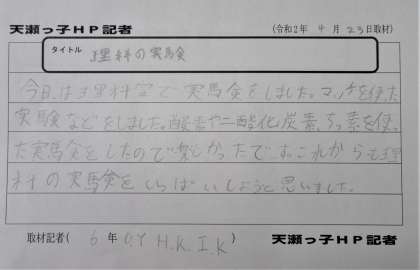 天瀬っ子HP記者 (令和2年 4月 23日取材)
タイトル 理科の実験
今日は理科室で実験をしました。マッチを使た
実験などをしました。酸素や二酸化炭素、ちっ素を使っ
た実験をしたので楽しかったです。これからも理
科の実験をしようと思いました。
取材記者( 6年 O.Y H.K. I.K )
天瀬っ子HP記者